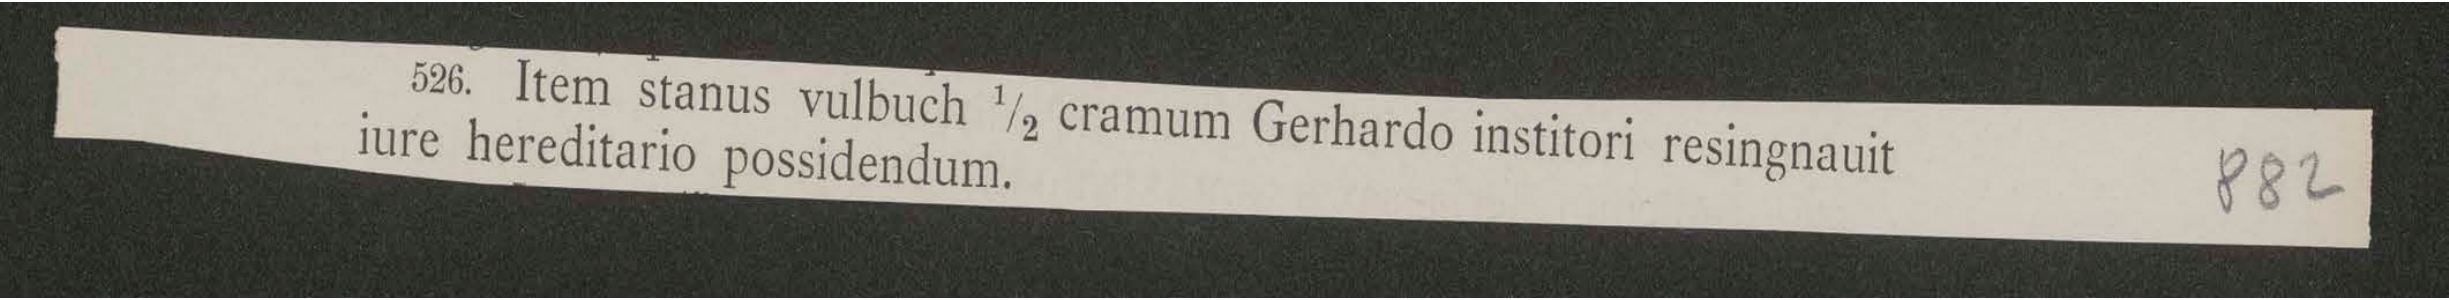 526. Item stanus vulbuch 1/2 cramum Gerhardo institori resingnauit
iure hereditario possidendum.
882